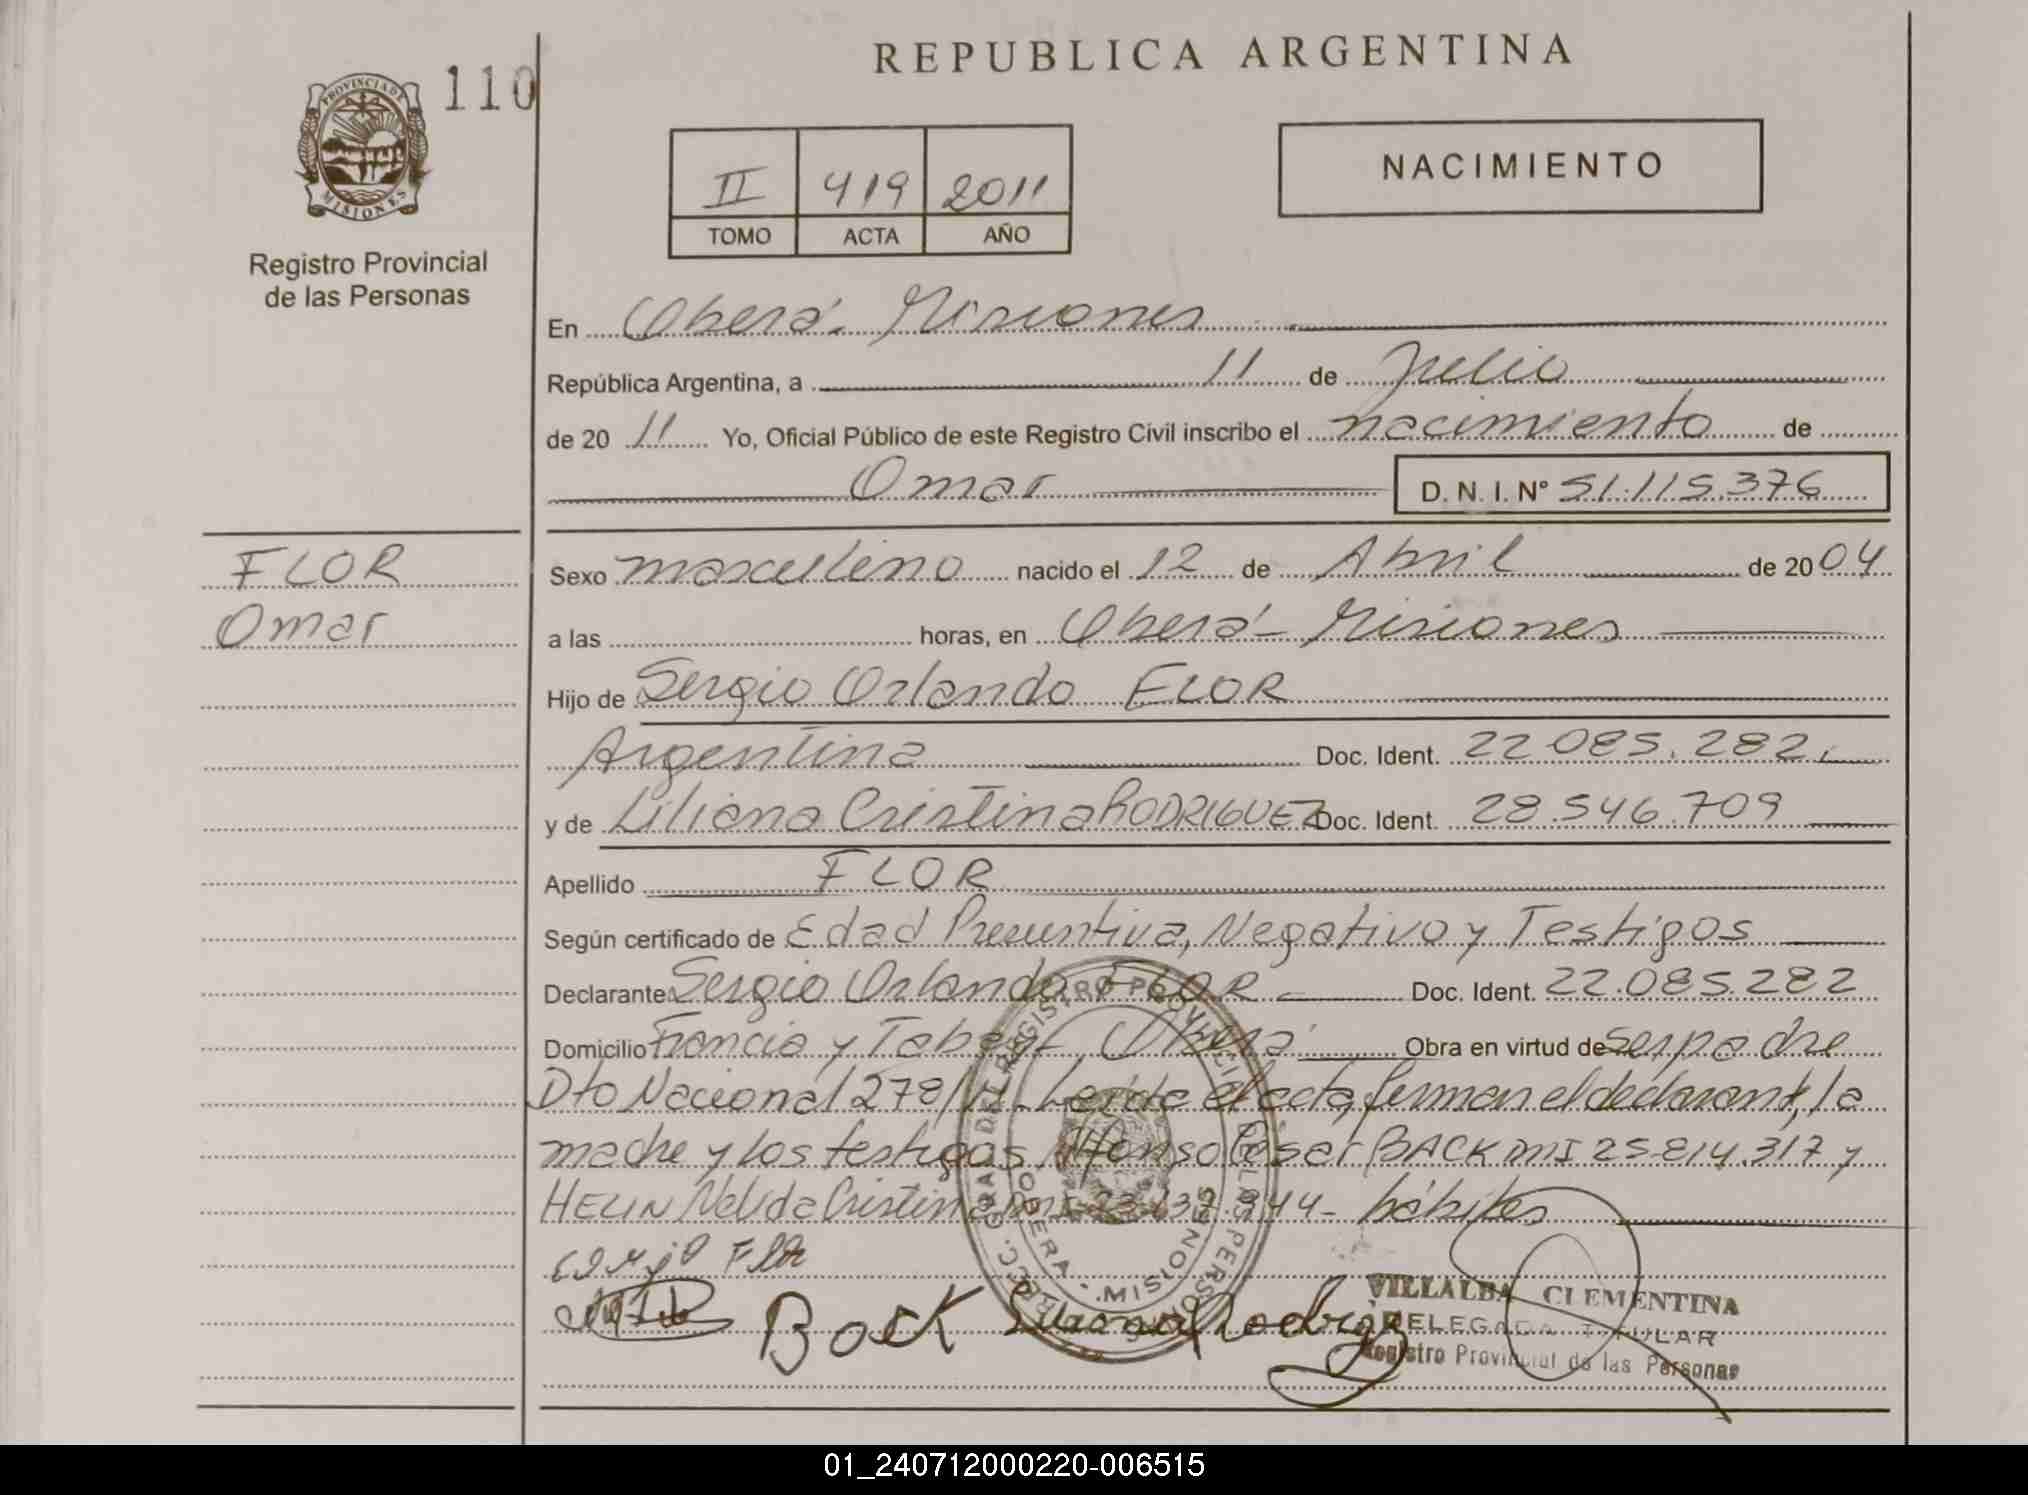 REPUBLICA ARGENTINA
PROVINCIA DE MISIONES
110
Registro Provincial
de las Personas
II 419 2011
TOMO ACTA AÑO
NACIMIENTO
En Oberá - Misiones
República Argentina, a 11 de Julio
de 20 11 Yo, Oficial Público de este Registro Civil inscribo el nacimiento de
Omar D. N. I. N° 51.115.376
FLOR
Omar
Sexo masculino nacido el 12 de Abril de 20 04
a las horas, en Oberá - Misiones
Hijo de Sergio Orlando FLOR
Argentina Doc. Ident. 22.085.282.
y de Liliana Cristina RODRIGUEZ Doc. Ident. 28.546.709
Apellido FLOR
Según certificado de Edad Presuntiva, Negativo y Testigos
Declarante Sergio Orlando FLOR Doc. Ident. 22.085.282
Domicilio Francia y Oberá Obra en virtud de ser padre
Dto Nacional 278/11 - Leída el acta, firman el declarante, la
madre y los testigos Alfonso César BACK MI 25.814.317 y
HELIN Nelida Cristina hábiles
Back Liliana Rodrigz
VILLALBA CLEMENTINA
DELEGADA TITULAR
Registro Provincial de las Personas
OBERA - MISIONES
01_240712000220-006515